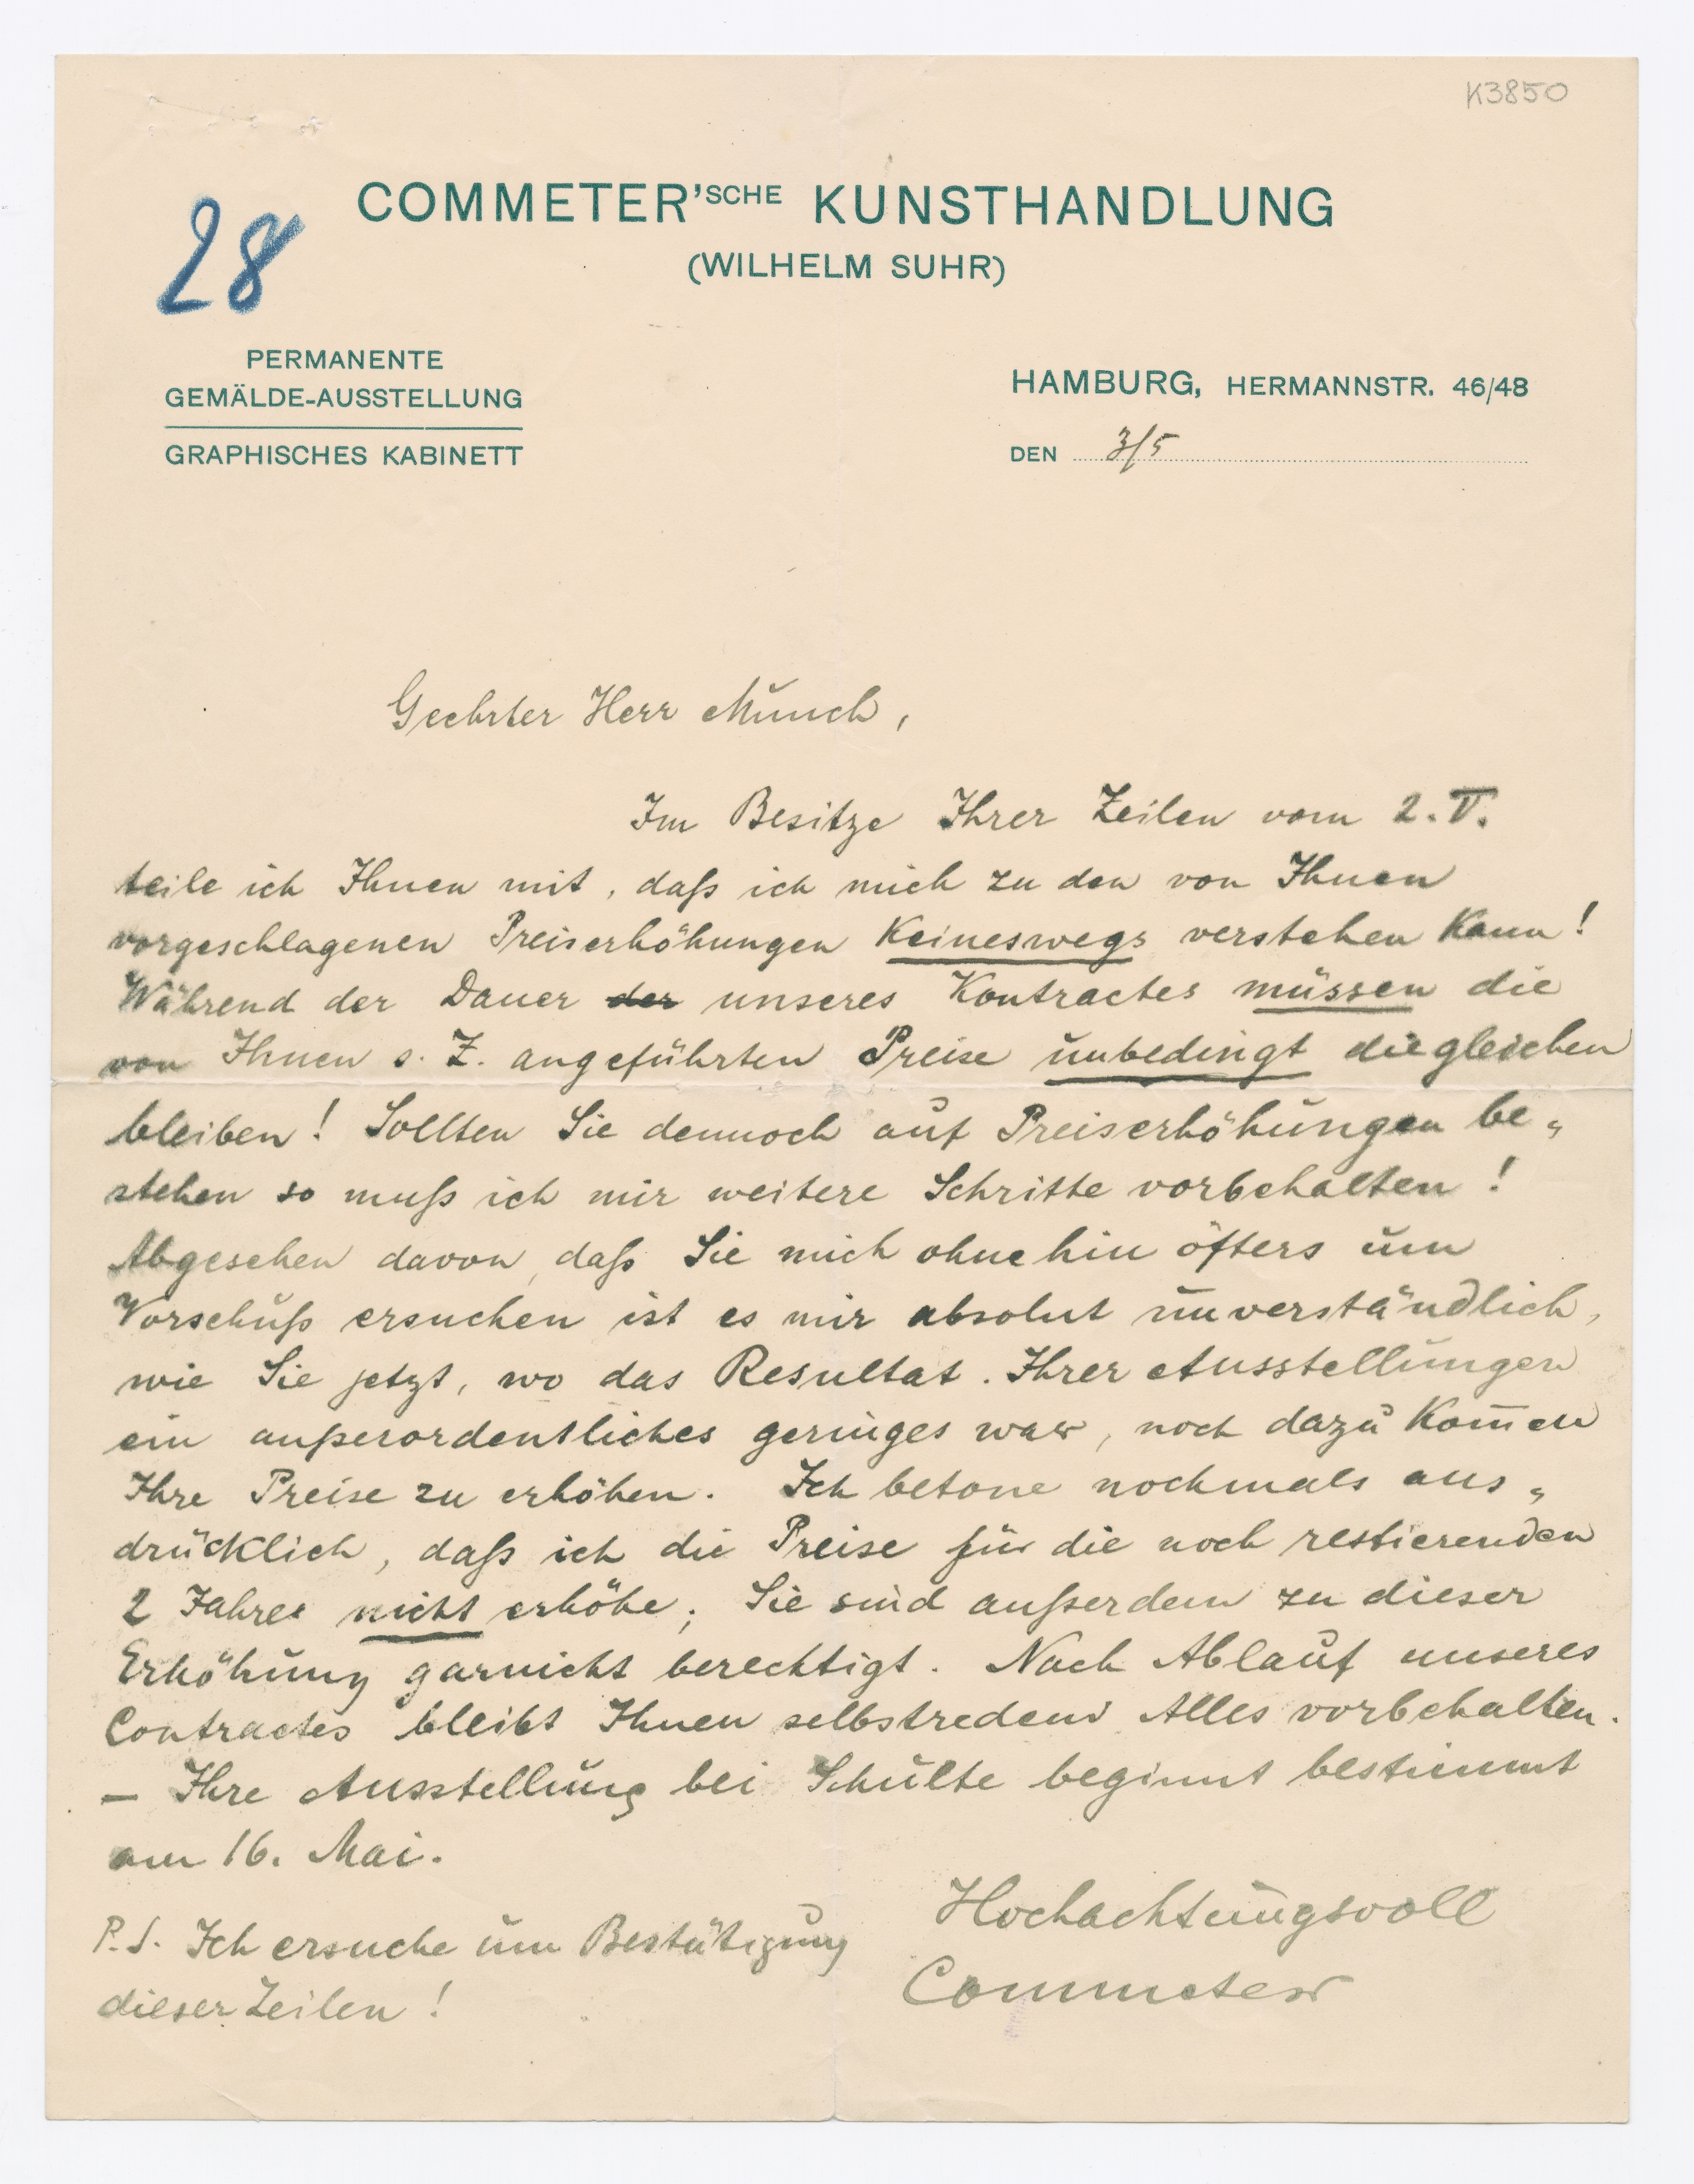 K3850
COMMETER'SCHE KUNSTHANDLUNG
(WILHELM SUHR)
28
PERMANENTE
GEMÄLDE-AUSSTELLUNG
GRAPHISCHES KABINETT
HAMBURG, HERMANNSTR. 46/48
DEN 3/5
Geehrter Herr Munch,
Im Besitze Ihrer Zeilen vom 2. V.
teile ich Ihnen mit, daß ich mich zu den von Ihnen
vorgeschlagenen Preiserhöhungen keineswegs verstehen kann!
Während der Dauer der unseres Kontractes müssen die
von Ihnen s. Z. angeführten Preise unbedingt die gleichen
bleiben! Sollten Sie dennoch auf Preiserhöhungen be„
stehen so muß ich mir weitere Schritte vorbehalten!
Abgesehen davon, daß Sie mich ohnehin öfters um
Vorschuß ersuchen ist es mir absolut unverständlich,
wie Sie jetzt, wo das Resultat. Ihrer Ausstellungen
ein außerordentliches geringes war, noch dazu kom̅en
Ihre Preise zu erhöhen. Ich betone nochmals aus„
drücklich, daß ich die Preise für die noch restierenden
2 Jahre nicht erhöhe; Sie sind außerdem zu dieser
Erhöhung garnicht berechtigt. Nach Ablauf unseres
Contractes bleibt Ihnen selbstredend Alles vorbehalten.
– Ihre Ausstellung bei Schulte beginnt bestimmt
am 16. Mai.
Hochachtungsvoll
Commeter
P.S. Ich ersuche um Bestätigung
dieser Zeilen!